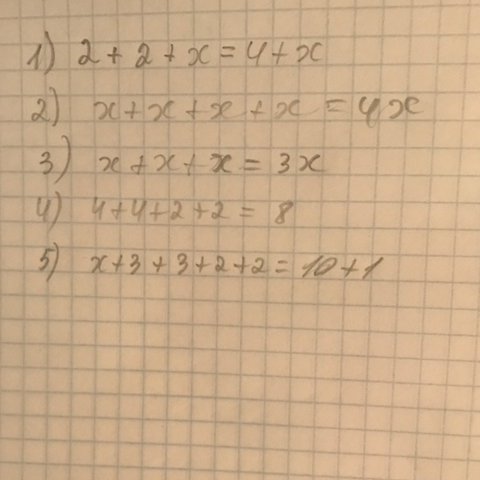 1) 2 + 2 + x = 4 + x
2) x + x + x + x = 4x
3) x + x + x = 3x
4) 4 + 4 + 2 + 2 = 8
5) x + 3 + 3 + 2 + 2 = 10 + 1